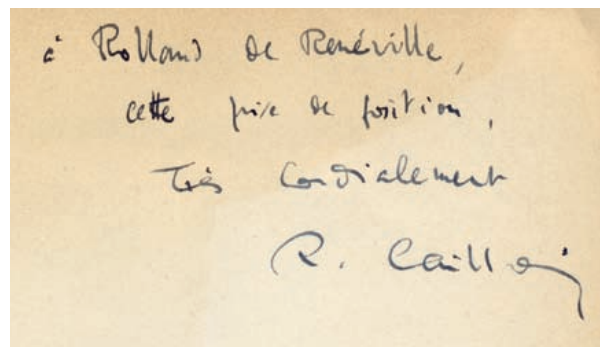 à Rolland de Renéville,
cette prise de position,
Très Cordialement
R. Caillois